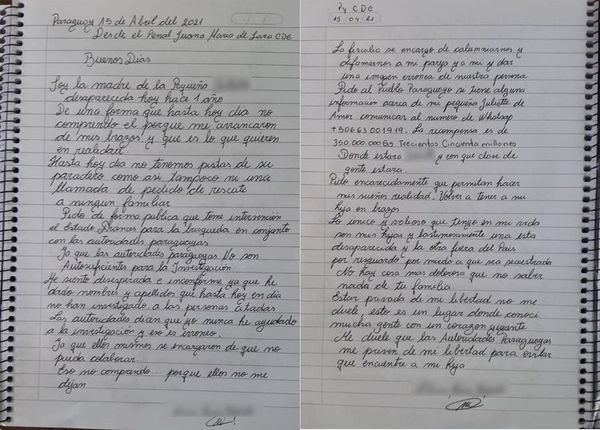 Paraguay 15 de Abril del 2021
Desde el Penal Juana Maria de Lara CDE
Buenos Dias
Soy la madre de la Pequeña
desaparecida hoy hace 1 año
De una forma que hasta hoy dia no
comprendo el porque me arrancaron
de mis brazos y que es lo que quieren
en realidad
Hasta hoy dia no tenemos pistas de su
paradero como asi tampoco ni una
llamada de pedido de rescate
a ningun familiar
Pido de forma publica que tome intervención
el Estado para la busqueda en conjunto
con las autoridades paraguayas
Ya que las autoridades paraguayas No son
Autosuficientes para la Investigación
He siento desesperada e inconforme ya que he
dado nombres y apellidos que hasta hoy en dia
no han investigado a las personas Citadas
Las autoridades dicen que yo nunca he ayudado
a la investigación y eso es erroneo.
Ya que ellos mismos se encargaron de que no
pueda colaborar.
Eso no comprendo... porque ellos no me
dejan
Py CDE
15 04 21
La fiscalia se encargo de calumniarnos y
difamarnos a mi pareja y a mi y dar
una imagen erronea de nuestra persona
Pido al Pueblo Paraguayo si tiene alguna
informacion acerca de mi pequeña Juliette de
Amor comunicar al numero de Whatsap
La recompensa es de
350.000.000 Gs Trecientos Cincuenta millones
Donde estara y con que clase de
gente estara.
Pido encarecidamente que permitan hacer
mis sueños realidad. Volver a tener a mi
hija en brazos
Lo unico y valioso que tengo en mi vida
son mis hijas y lastimosamente una esta
desaparecida y la otra fuera del Pais
por resguardo por miedo a que sea secuestrada
No hay cosa mas dolorosa que no saber
nada de tu familia.
Estar privada de mi libertad no me
duele, esto es un lugar donde conoci
mucha gente con un corazon gigante
He duele que las Autoridades Paraguayas
me priven de mi libertad para evitar
que encuentre a mi hija